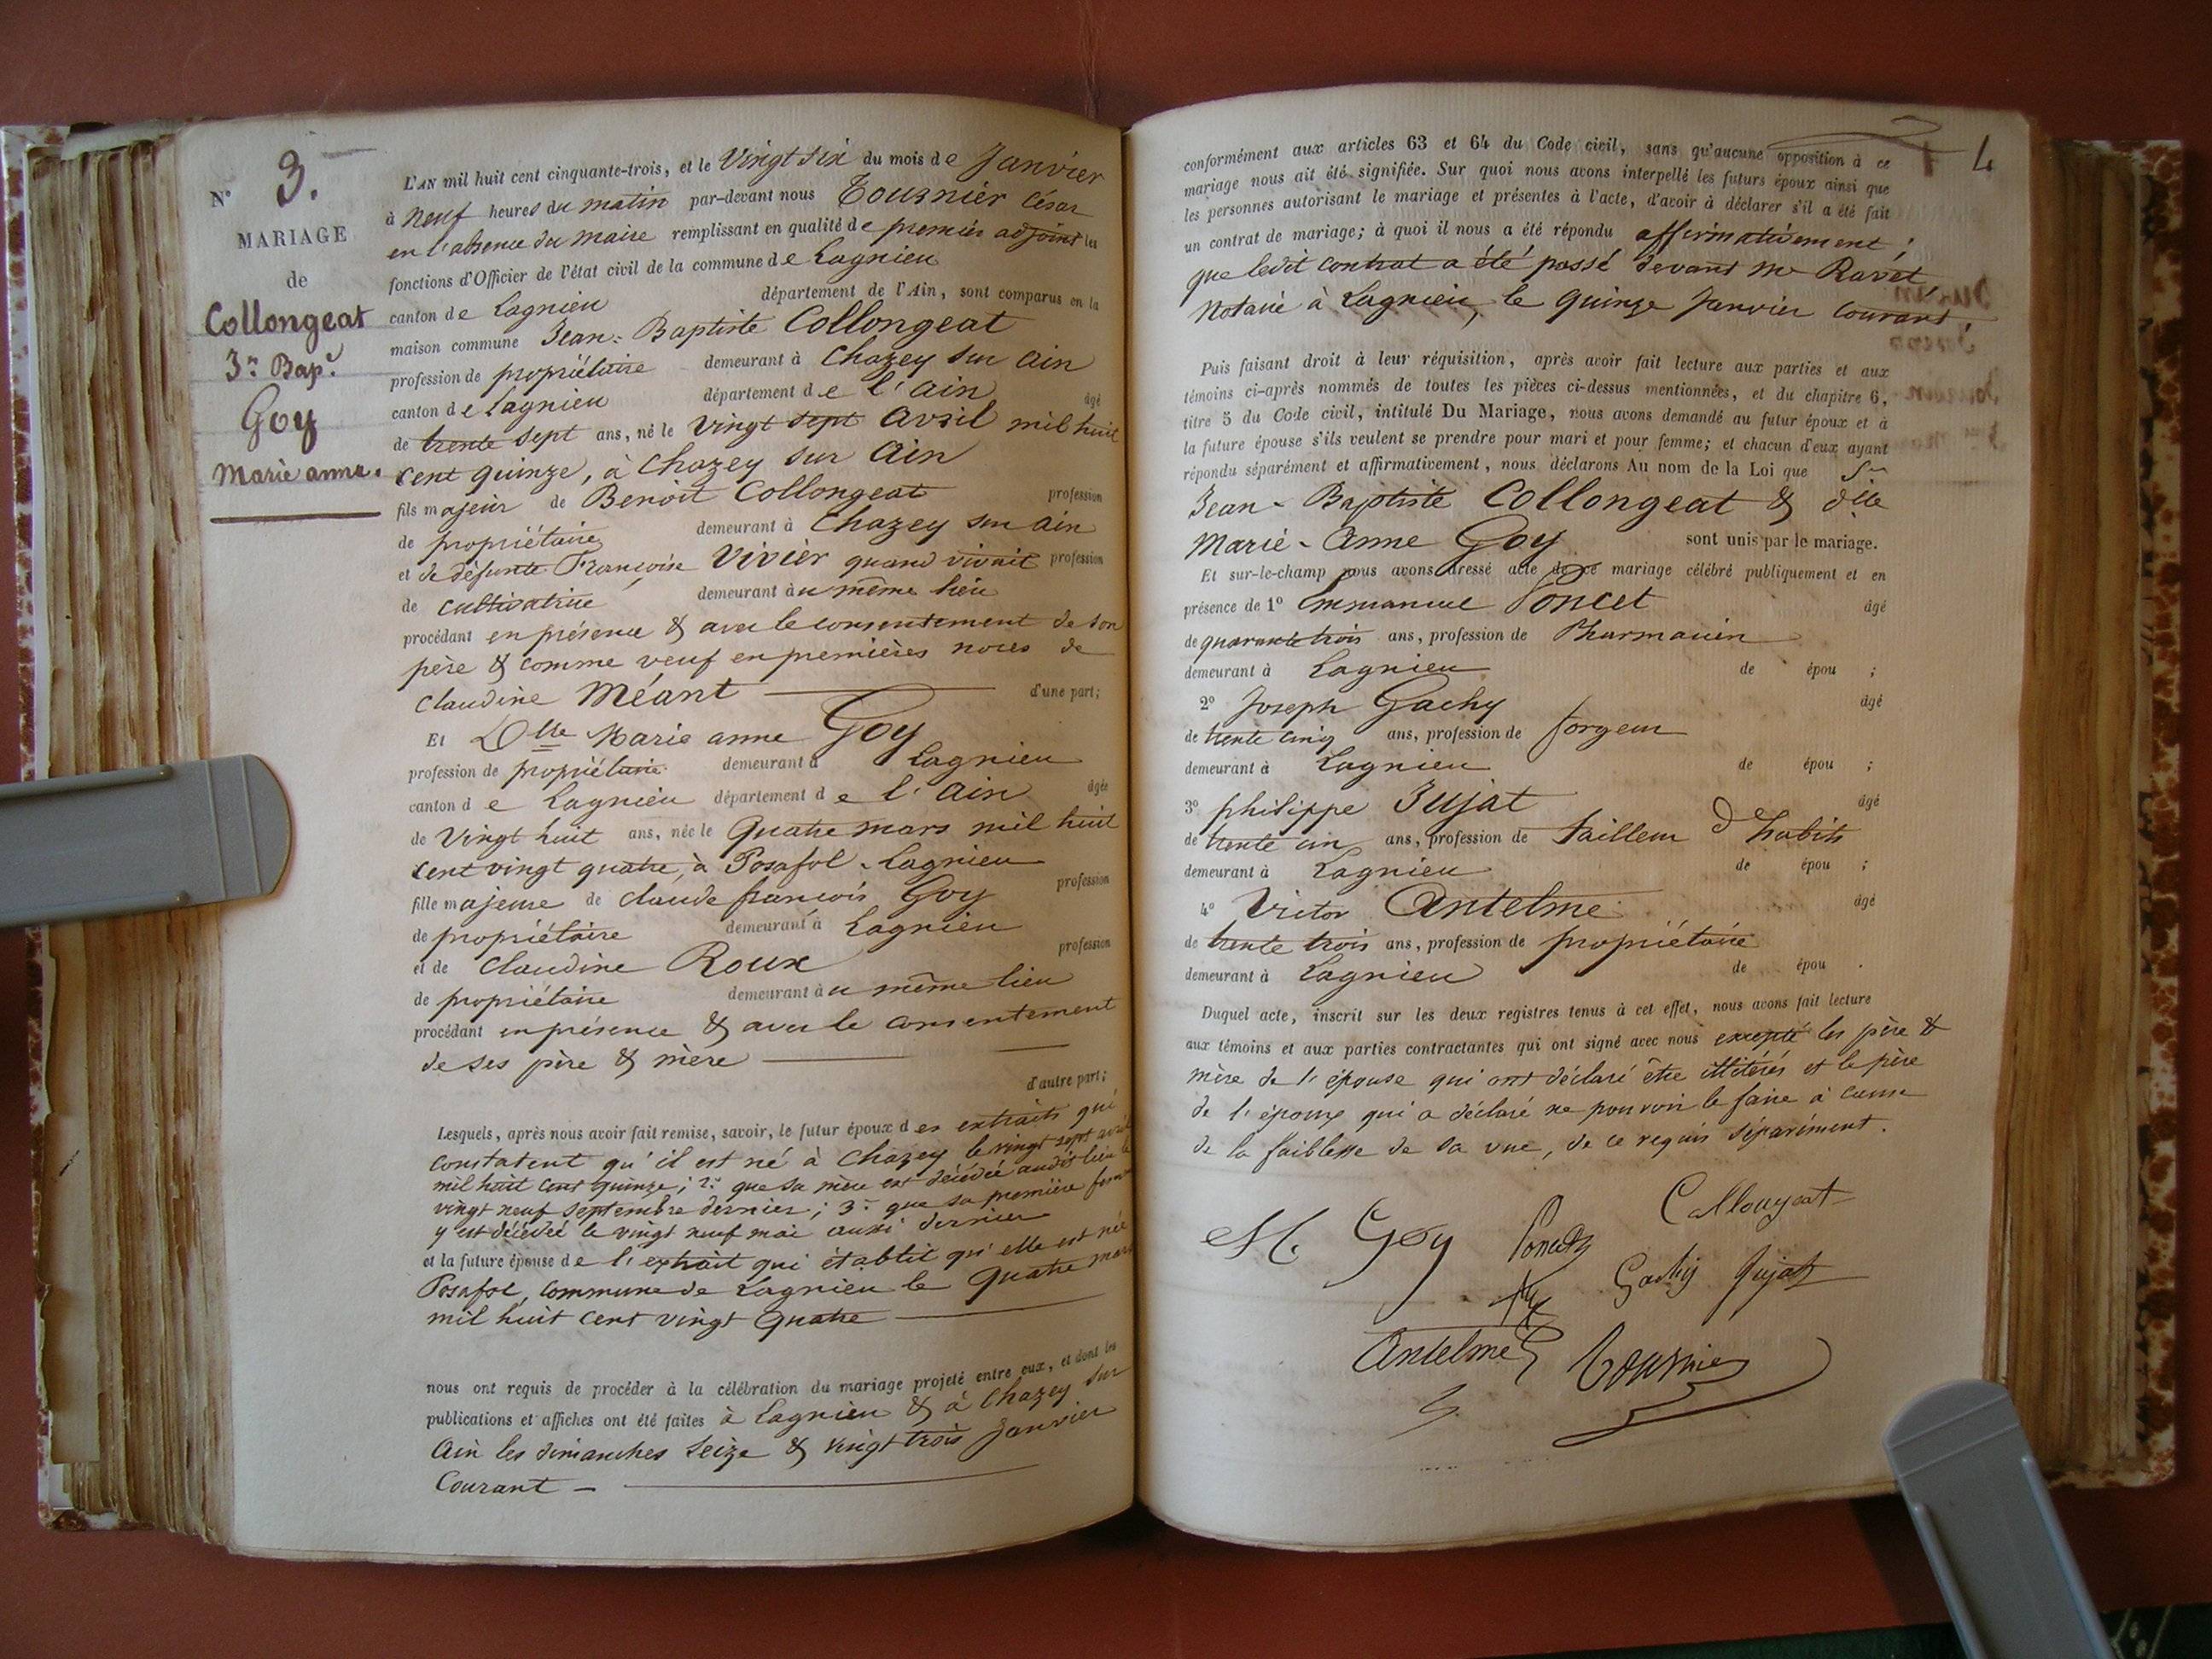 N° 3.
MARIAGE
de
Collongeat
Jn Bap.te
Goy
Marie anne.
L'AN mil huit cent cinquante-trois, et le Vingt six du mois de Janvier
à neuf heures du matin par-devant nous Tournier César
en l'absence du maire remplissant en qualité de premier adjoint les
fonctions d'Officier de l'état civil de la commune de Lagnieu
canton de Lagnieu département de l'Ain, sont comparus en la
maison commune Jean-Baptiste Collongeat
profession de propriétaire demeurant à Chazey sur ain
canton de Lagnieu département de l'ain âgé
de trente sept ans, né le vingt sept avril mil huit
cent quinze, à Chazey sur Ain
fils majeur de Benoit Collongeat profession
de propriétaire demeurant à Chazey sur ain
et de défunte Françoise Vivier quand vivait profession
de cultivatrice demeurant au même lieu
procédant en présence & avec le consentement de son
père & comme veuf en premières noces de
Claudine Méant d'une part;
Et Dlle Marie anne Goy
profession de propriétaire demeurant à Lagnieu
canton de Lagnieu département de l'Ain âgée
de vingt huit ans, née le Quatre mars mil huit
cent vingt quatre, à Posafol-Lagnieu
fille majeure de Claude françois Goy profession
de propriétaire demeurant à Lagnieu
et de Claudine Roux profession
de propriétaire demeurant au même lieu
procédant en présence & avec le consentement
de ses père & mère
d'autre part;
Lesquels, après nous avoir fait remise, savoir, le futur époux des extraits qui
constatent qu'il est né à Chazey le vingt sept avril
mil huit cent quinze; 2° que sa mère est décédée audit lieu le
vingt neuf septembre dernier; 3° que sa première femme
y est décédée le vingt neuf mai aussi dernier
et la future épouse de l'extrait qui établit qu'elle est née
Posafol, commune de Lagnieu le Quatre mars
mil huit cent vingt quatre
nous ont requis de procéder à la célébration du mariage projeté entre eux, et dont les
publications et affiches ont été faites à Lagnieu & à Chazey sur
Ain les dimanches seize & vingt trois Janvier
Courant
4
conformément aux articles 63 et 64 du Code civil, sans qu'aucune opposition à ce
mariage nous ait été signifiée. Sur quoi nous avons interpellé les futurs époux ainsi que
les personnes autorisant le mariage et présentes à l'acte, d'avoir à déclarer s'il a été fait
un contrat de mariage; à quoi il nous a été répondu affirmativement;
que ledit contrat a été passé devant Me Ravet,
Notaire à Lagnieu, le quinze Janvier courant.
Puis faisant droit à leur réquisition, après avoir fait lecture aux parties et aux
témoins ci-après nommés de toutes les pièces ci-dessus mentionnées, et du chapitre 6,
titre 5 du Code civil, intitulé Du Mariage, nous avons demandé au futur époux et à
la future épouse s'ils veulent se prendre pour mari et pour femme; et chacun d'eux ayant
répondu séparément et affirmativement, nous déclarons Au nom de la Loi que Sr
Jean-Baptiste Collongeat & dlle
Marie-Anne Goy sont unis par le mariage.
Et sur-le-champ nous avons dressé acte de ce mariage célébré publiquement et en
présence de 1° Emmanuel Poncet âgé
de quarante trois ans, profession de Pharmacien
demeurant à Lagnieu de épou ;
2° Joseph Gachy âgé
de trente cinq ans, profession de forgeur
demeurant à Lagnieu de épou ;
3° philippe Jujat âgé
de trente un ans, profession de tailleur d'habits
demeurant à Lagnieu de épou ;
4° Victor Antelme âgé
de trente trois ans, profession de propriétaire
demeurant à Lagnieu de épou .
Duquel acte, inscrit sur les deux registres tenus à cet effet, nous avons fait lecture
aux témoins et aux parties contractantes qui ont signé avec nous excepté les père &
mère de l'épouse qui ont déclaré être illitérés et le père
de l'époux qui a déclaré ne pouvoir le faire à cause
de la faiblesse de sa vue, de ce requis séparément.
Collongeat
M. Goy Poncet
Gachy Jujat
Antelme Tournier